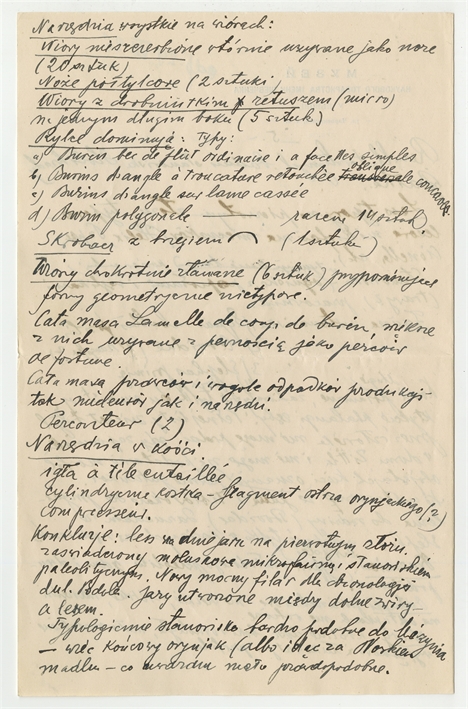 Narzędzia wszystkie na wiórach:
Wióry nieszczerbione wtórnie używane jako noże
(20 sztuk)
Noże półtylcowe (2 sztuki)
Wióry z drobniutkim retuszem (micro)
na jednym długim boku (5 sztuk)
Rylce dominują: Typy:
a) Burin bec de flûte ordinaire i a facettes simples
b) Burins d'angle à troncature retouchée oblique concave
c) Burins d'angle sur lame cassée
d) Burin polygonale — razem 14 sztuk
Skrobacz z brzegiem (1 sztuka)
Wióry dwukrotnie złamane (6 sztuk) przypominające
formy geometryczne nietypowe.
Cała masa Lamelle de coup de burin, niektóre
z nich używane z pewnością jako perçoir
de fortune.
Cała masa i wogóle odpadków produkcji
tak nucleusów jak i narzędzi.
Percouteur (2)
Narzędzia z kości
igła à tête entaillée
cylindryczna kostka - fragment ostrza oryniackiego (?)
Compresseur.
Konkluzje: less na dnie jaru na pierwotnym złożu,
zaświadczony molluskową mikrofauną i stanowiskiem
paleolitycznym. Nowy mocny filar dla chronologji
dyl. Podola. Jary utworzone między dolne żwiry
a lessem.
Typologicznie stanowisko bardzo podobne do
— więc końcowy oryniak (albo idąc za
— co uważam mało prawdopodobne.